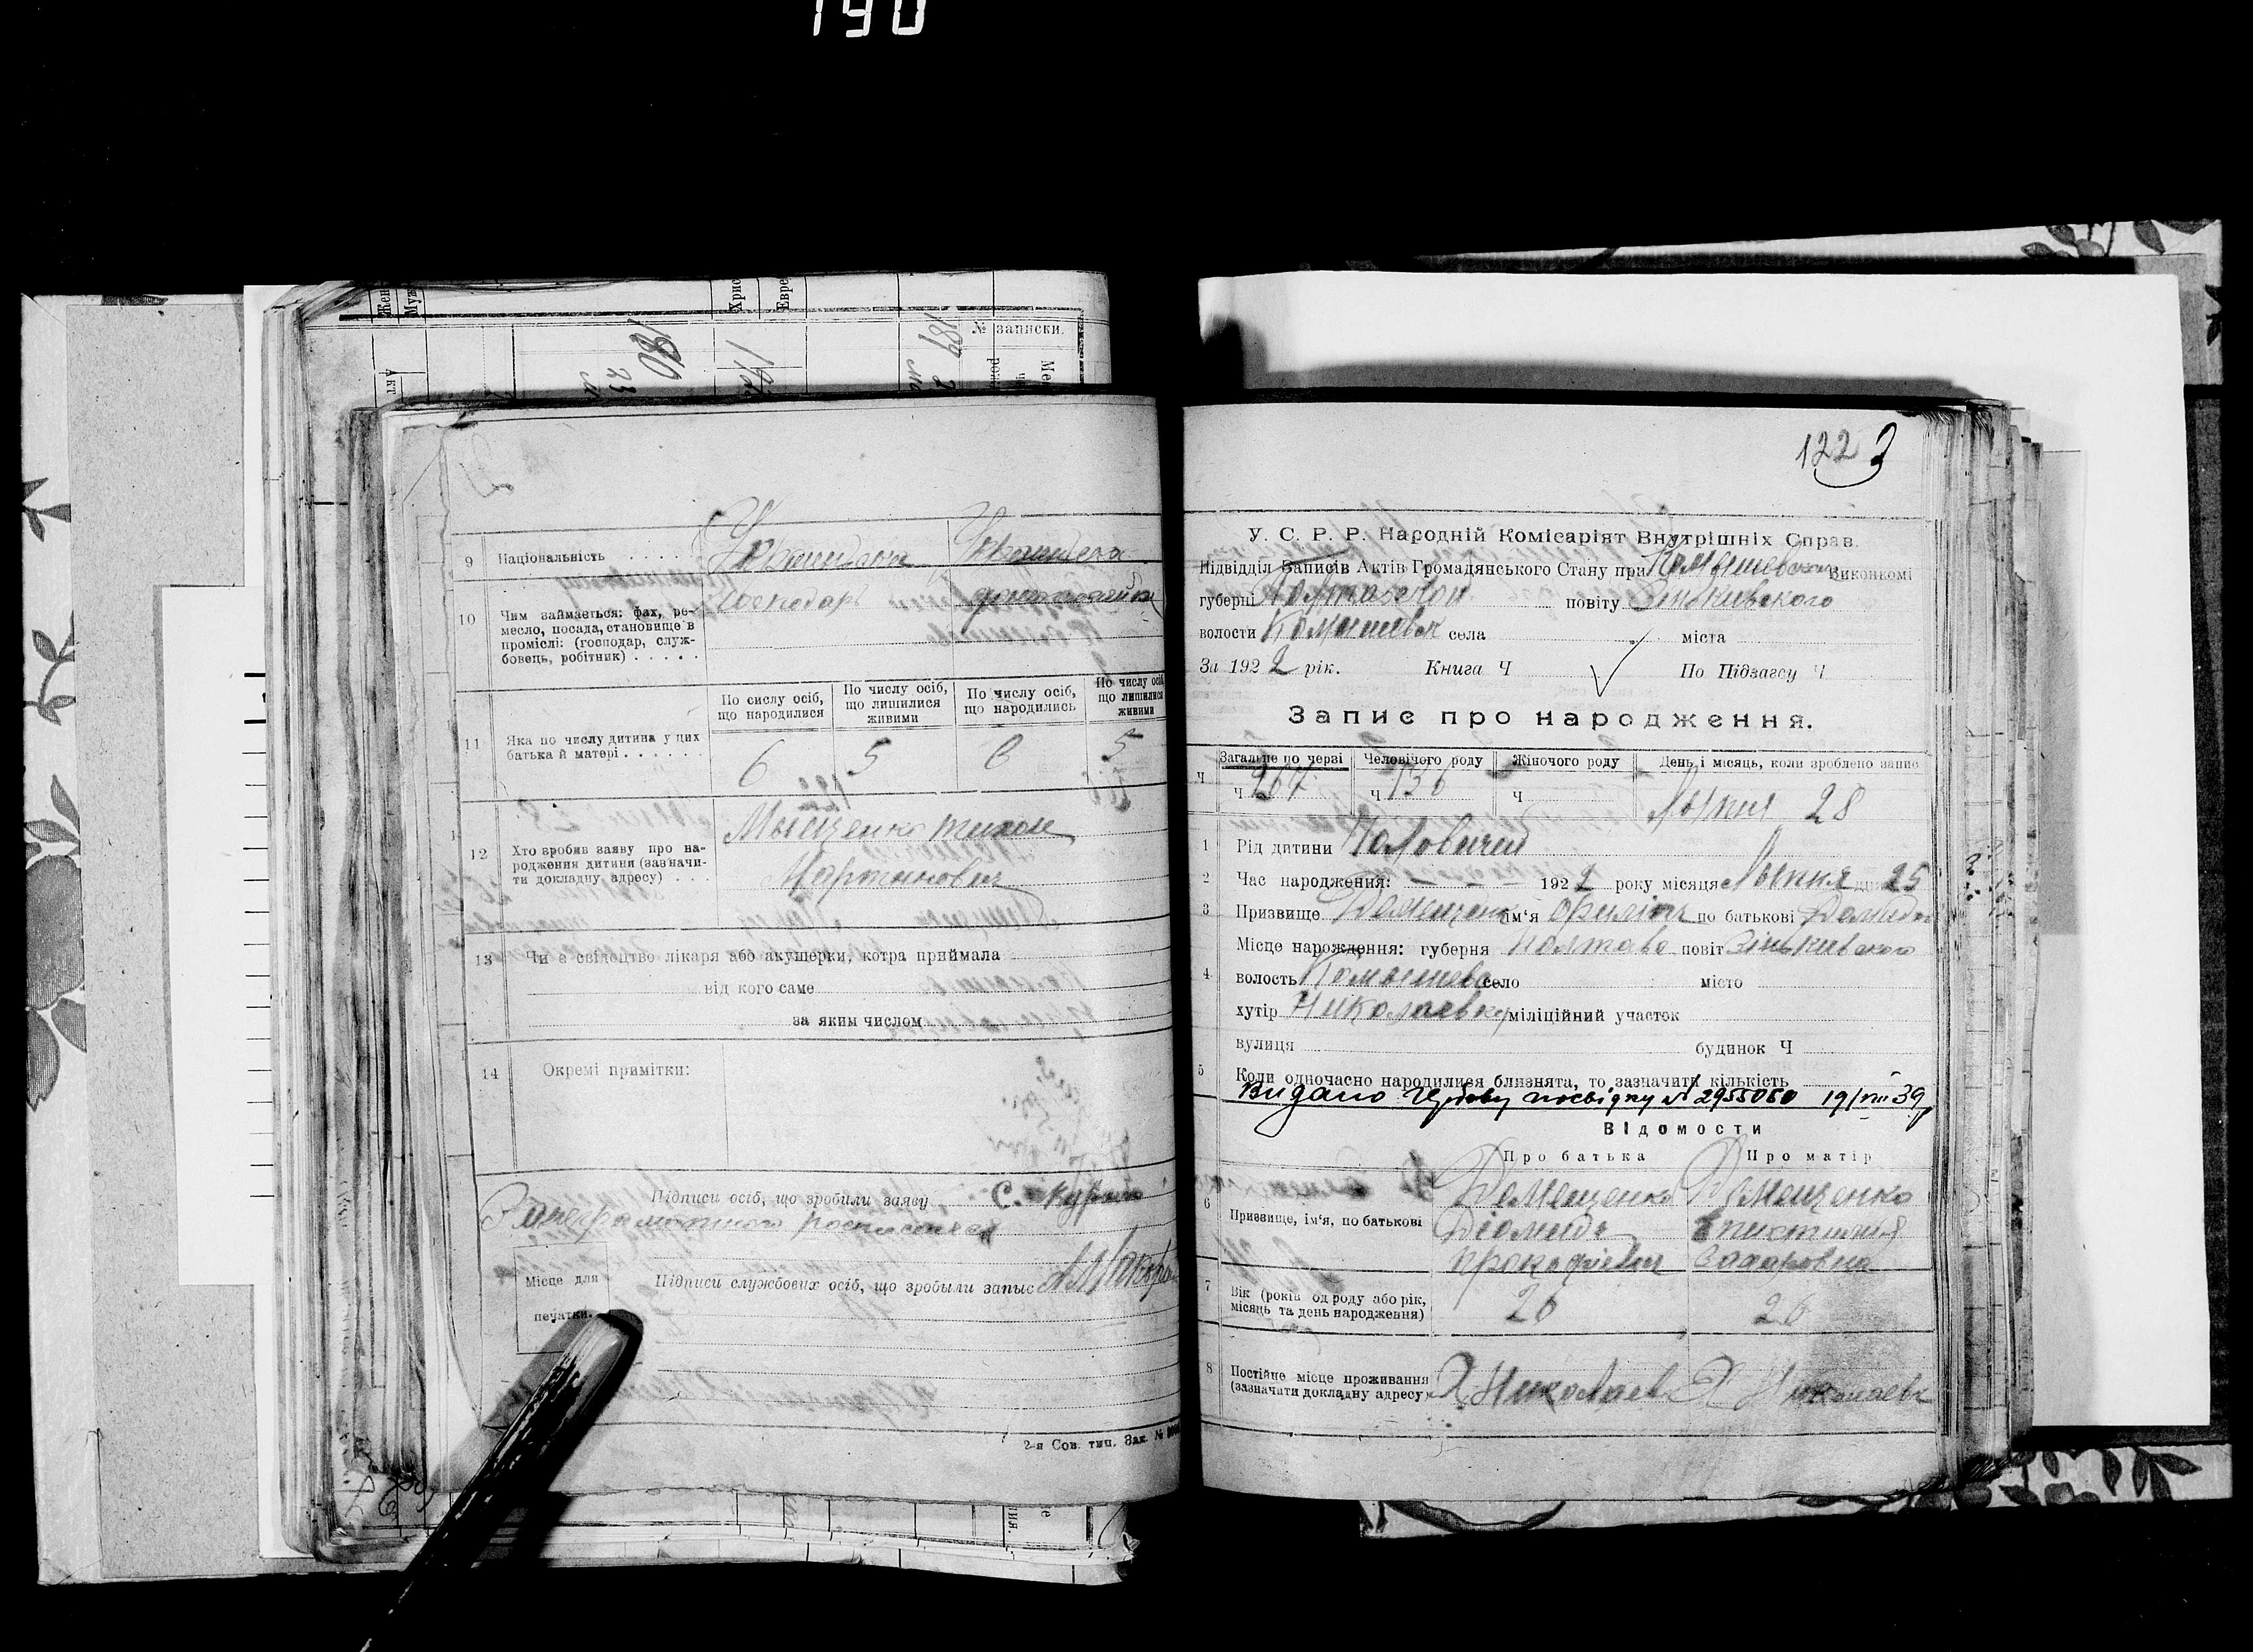 190
Жен
Муж
Хрис
Евре
№ записки.
189
180
23
Акт
9 Національність . . . . . Украинська Украинска
10 Чим займається: фах, ре-
месло, посада, становище в
промісл: (господар, служ-
бовець, робітник) . . . . .
Господарь
домохозяйка
По сислу осіб, що народилися
По числу осіб, що лишилися живими
По числу осіб, що народились
По числу осіб що лишилися живими
11 Яка по числу дитина у цих
батька й матері . . . . . .
6 5 6 5
12 Хто зробив заяву про на-
родження дитини (зазначи-
ти докладну адресу) . . .
Мищенко тихон
Мартинович
13 Чи є свідоцтво лікаря або акушерки, котра приймала
від кого саме
за яким числом
14 Окремі примітки:
Підписи осіб, що зробили заяву
За неграмотного росписался
Місце для
печатки.
Підписи службових осіб, що зробили запис
2-я Сов. тип. Зак. №
122 3
У. С. Р. Р. Народній Комісаріят Внутрішніх Справ.
Підвідділ Записів Актів Громадянського Стану при Комышевском Виконкомі
губерні Полтавской повіту Зіньківского
волости Комышевск села міста
За 1922 рік. Книга Ч По Підзагсу Ч
Запис про народження.
Загальне по черзі Человічого роду Жіночого роду День і місяць, коли зроблено запис
Ч Ч 267 Ч 136 Ч Лыпня 28
1 Рід дитини Чоловичий
2 Час народження: 1922 року місяця Лыпня дня 25
3 Призвище Демещенко ім'я Филіп по батькові Демидов
Місце народження: губерня Полтава повіт Зіньківского
4 волость Комышевс село місто
хутір Николаевку міліційний участок
вулиця будинок Ч
5 Коли одночасно народилися близнята, то зазначити кількість
Видано Гербову посвідку № 2955060 19/VIII 39
Відомости
Про батька Про матір
6 Призвище, ім'я, по батькові
Демещенко Демещенко
Діомидь
прокофіевич Захаровна
7 Вік (років од роду або рік,
місяць та день народження)
26 26
8 Постійне місце проживання
(зазначати докладну адресу)
Х Николаев Х Николаевк